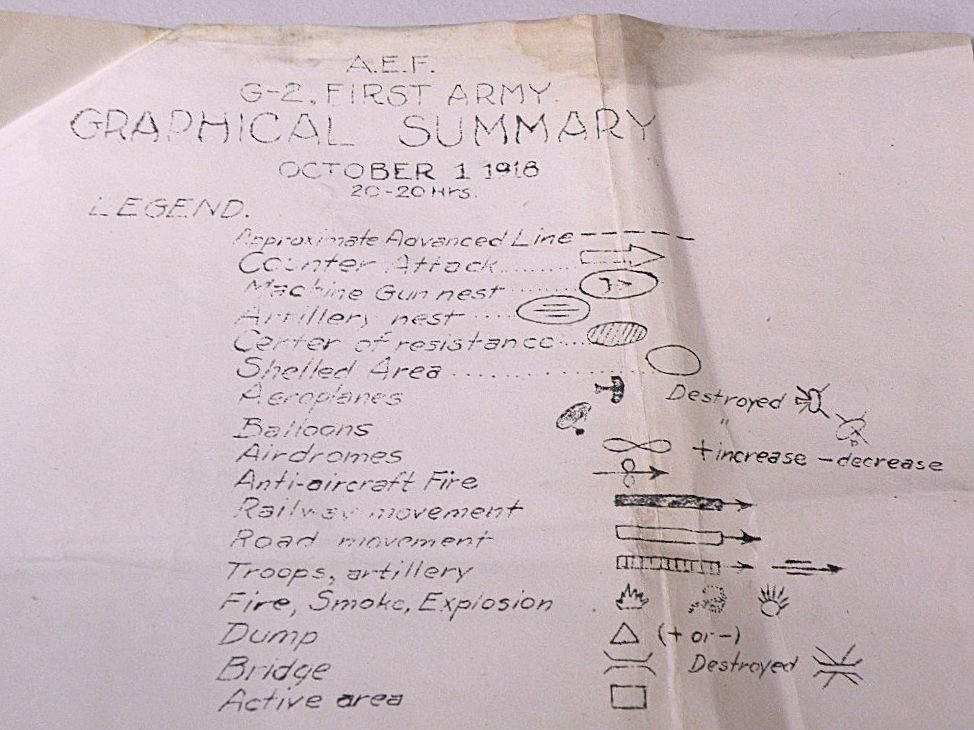 A.E.F.
G-2. FIRST ARMY.
GRAPHICAL SUMMARY
OCTOBER 1 1918
20-20 Hrs.
LEGEND.
Approximate Advanced Line
Counter Attack
Machine Gun nest
Artillery nest
Center of resistance
Shelled Area
Aeroplanes Destroyed
Balloons "
Airdromes + increase - decrease
Anti-aircraft Fire
Railway movement
Road movement
Troops, artillery
Fire, Smoke, Explosion
Dump (+ or -)
Bridge Destroyed
Active area